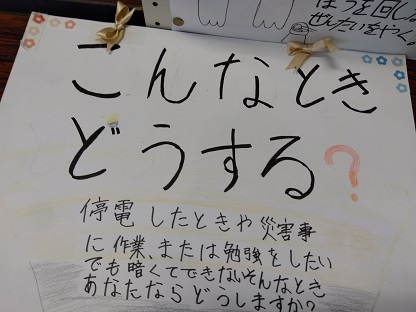 ほうを回し
ぜんたいをやく。
こんなとき
どうする?
停電したときや災害事
に作業、または勉強をしたい
でも暗くてできないそんなとき
あなたならどうしますか?